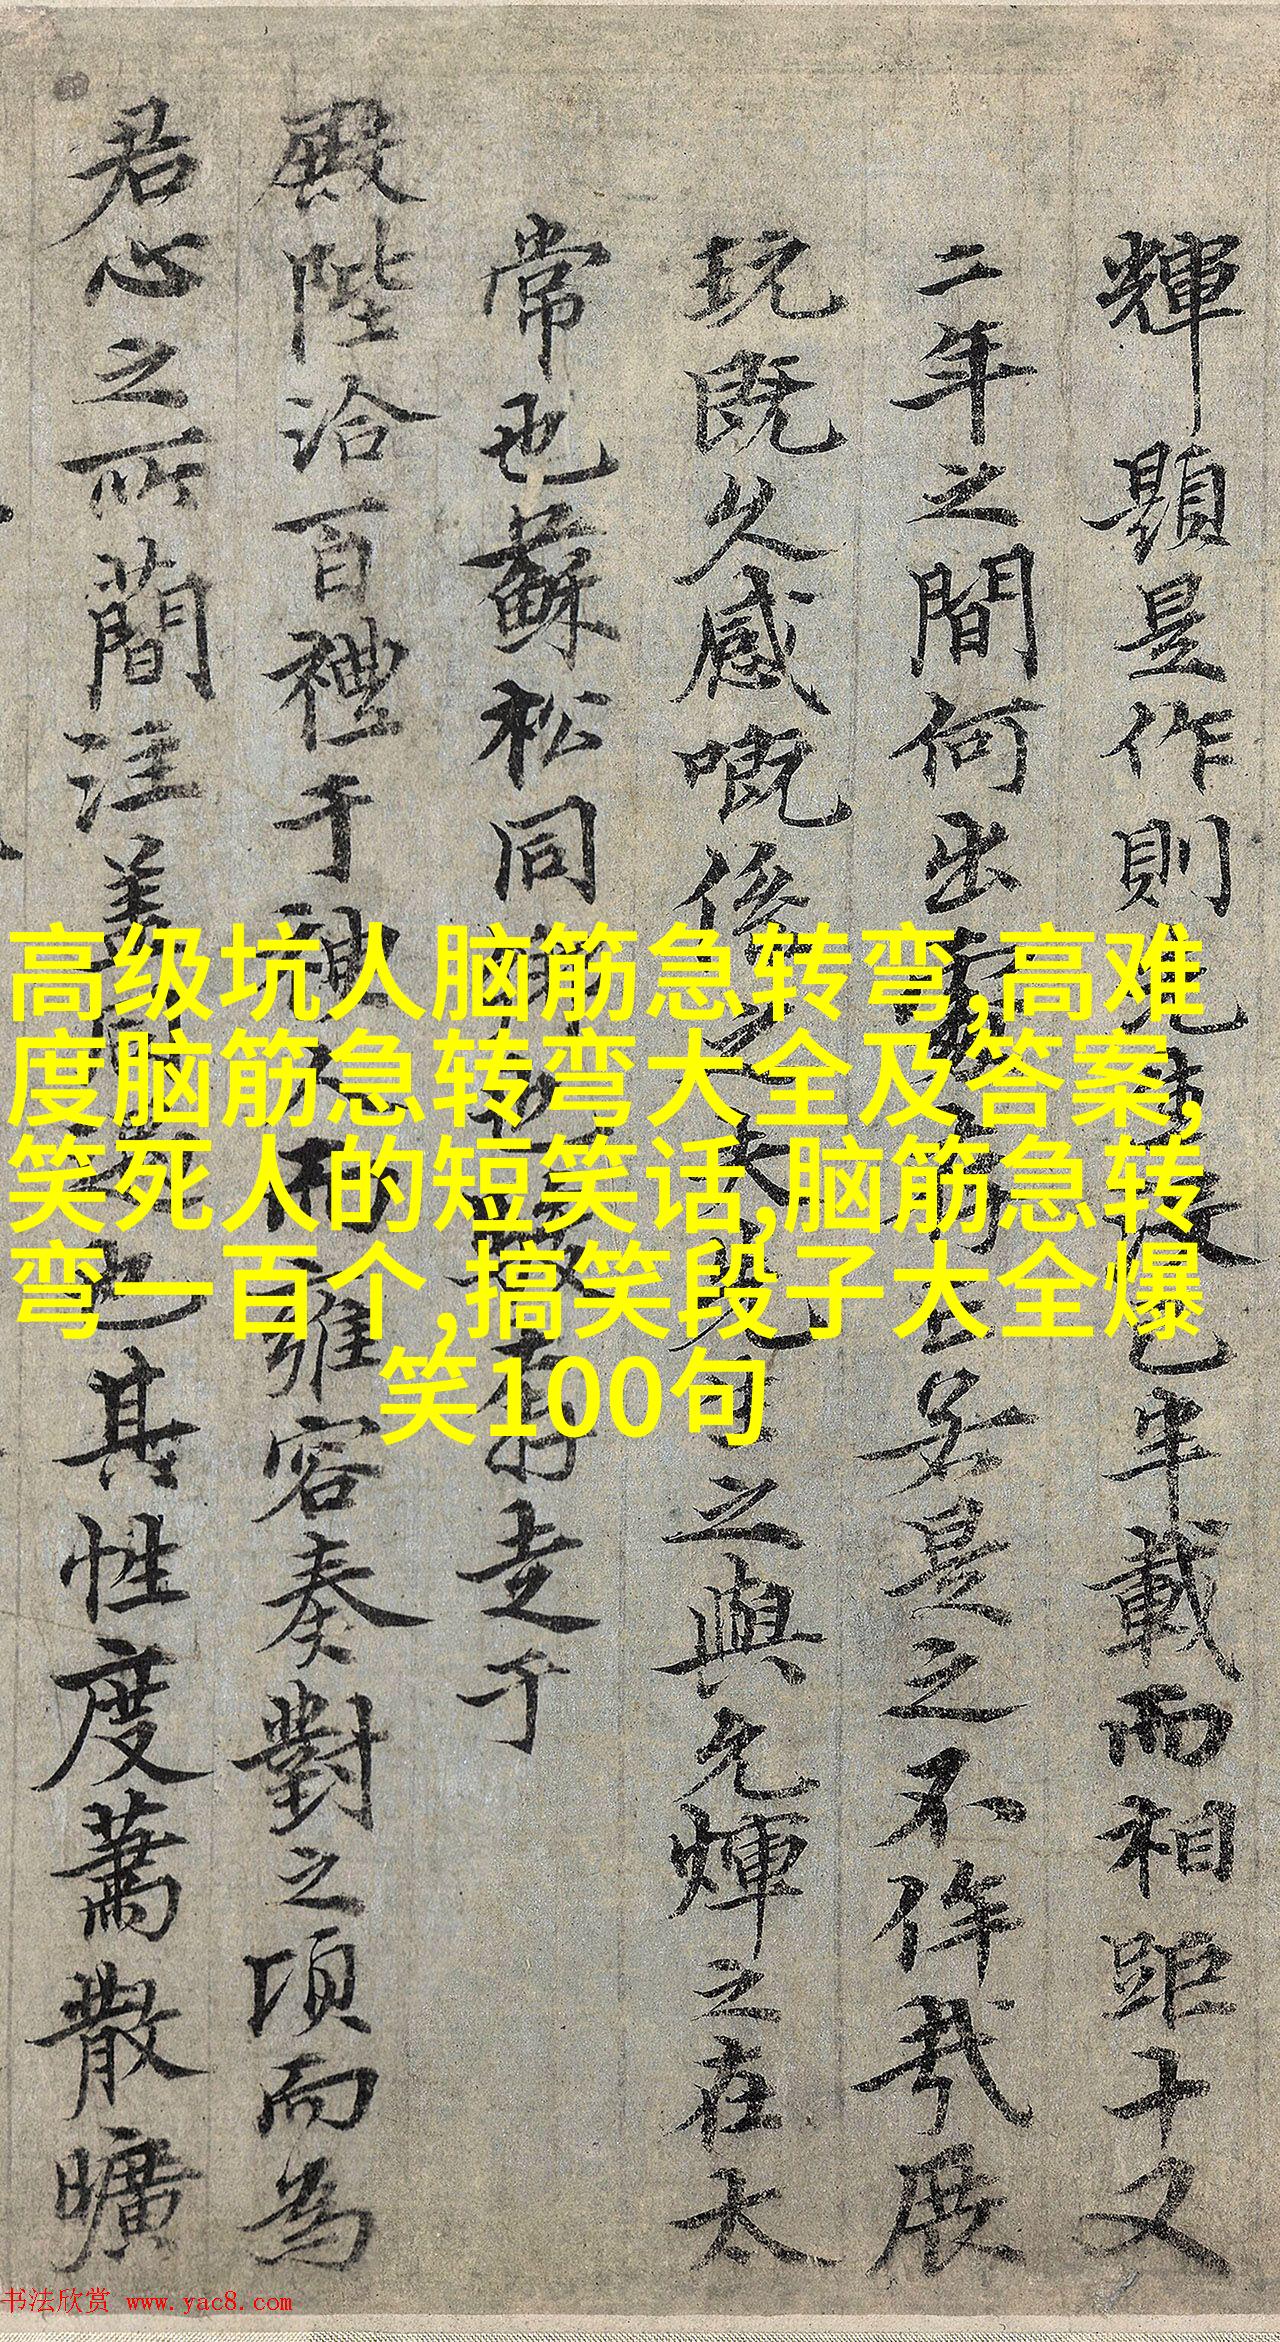 高级坑人脑筋急转弯,高难
度脑筋急转弯大全及答案,
笑死人的短笑话,脑筋急转
弯一百个,搞笑段子大全爆
笑100句
輝題是作則 已半載而相距十又
二年之間何出 若是之不侔哉展
玩既久感嘅係之 之與允輝之在太
常也蘇松同 走于
殿陛洽百禮于 雍容奏對之頃而為
君心之所蕳注 也其性度蕭散曠
书法欣赏 www.yac8.com